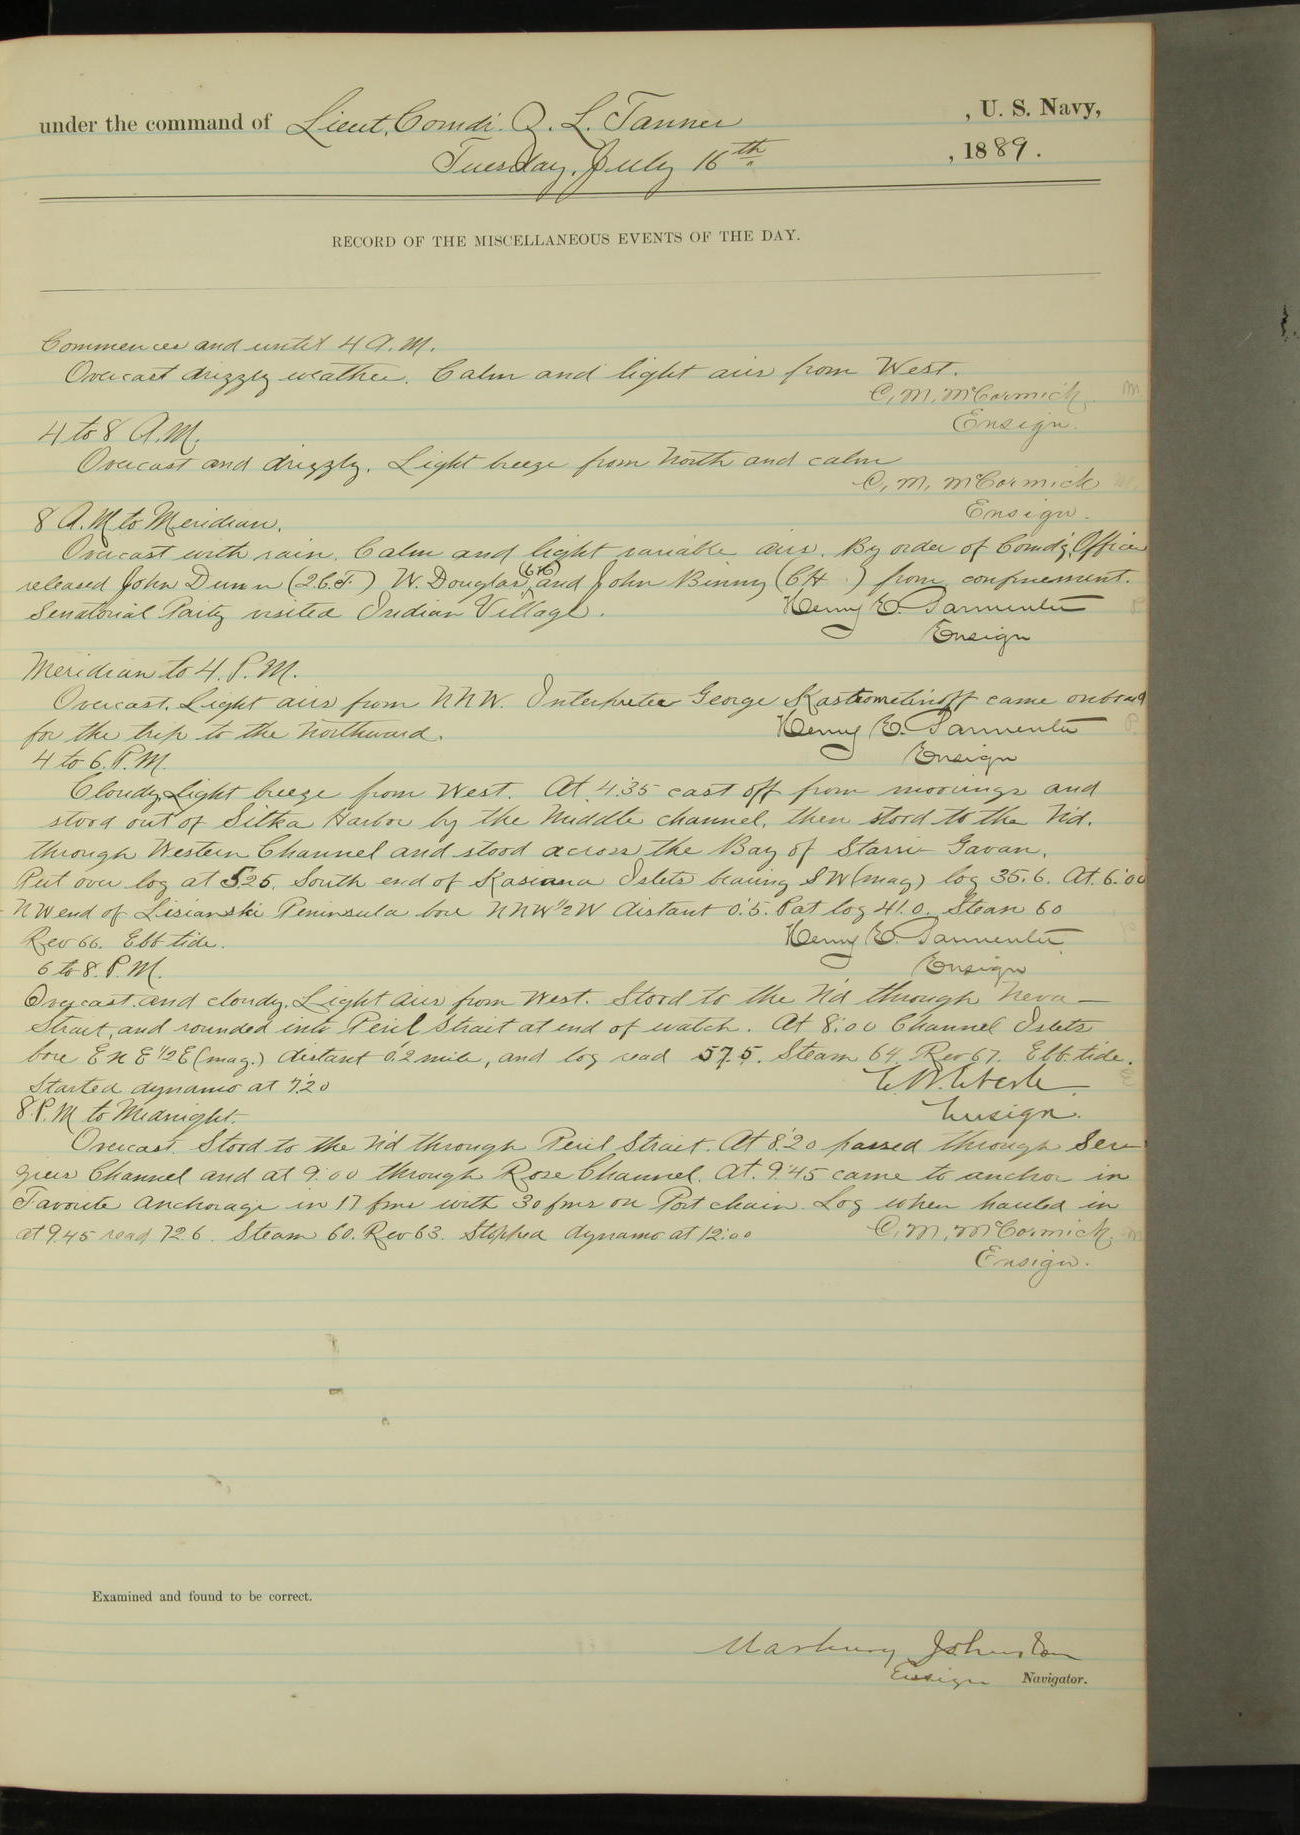 under the command of Lieut. Comdr. Z. L. Tanner, U. S. Navy,
Tuesday, July 16th, 1889.
RECORD OF THE MISCELLANEOUS EVENTS OF THE DAY.
Commences and until 4 A.M.
Overcast drizzly weather. Calm and light airs from West.
C. M. McCormick
Ensign.
4 to 8 A.M.
Overcast and drizzly. Light breeze from North and calm
C. M. McCormick
Ensign.
8 A.M to Meridian.
Overcast with rain. Calm and light variable airs. By order of Comd'g Officer
released John Dunn (2C.F.) W. Douglas, and John Binny (CH) from confinement.
Senatorial Party visited Indian Village. Henry E. Parmenter
Ensign
Meridian to 4. P. M.
Overcast. Light airs from NNW. Interpreter George Kastrometinoff came onboard
for the trip to the Northward. Henry E. Parmenter
4 to 6. P. M. Ensign
Cloudy, Light breeze from West. At 4:35 cast off from moorings and
stood out of Sitka Harbor by the Middle channel, then stood to the N'd.
through Western Channel and stood across the Bay of Starri Gavan.
Put over log at 5.25. South end of Kasiana Islets bearing SW (mag) log 35.6. At 6:00
NW end of Lisianski Peninsula bore NNW 1/2 W distant 0.5. Pat log 41.0. Steam 60
Rev 66. Ebb tide. Henry E. Parmenter
6 to 8. P. M. Ensign
Overcast and cloudy. Light airs from West. Stood to the N'd through Neva
Strait, and rounded into Peril Strait at end of watch. At 8:00 Channel Islets
bore ENE 1/2 E (mag.) distant 0.2 mile, and log read 57.5. Steam 64. Rev 67. Ebb tide.
Started dynamo at 7:20 E. W. Eberle
8. P. M to Midnight. Ensign.
Overcast. Stood to the N'd through Peril Strait. At 8:20 passed through Ser-
gius Channel and at 9:00 through Rose Channel. At 9:45 came to anchor in
Favorite anchorage in 17 fms with 30 fms on Port chain. Log when hauled in
at 9.45 read 72.6. Steam 60. Rev 63. Stopped dynamo at 12:00 C. M. McCormick.
Ensign.
Examined and found to be correct.
Marbury Johnston
Ensign Navigator.